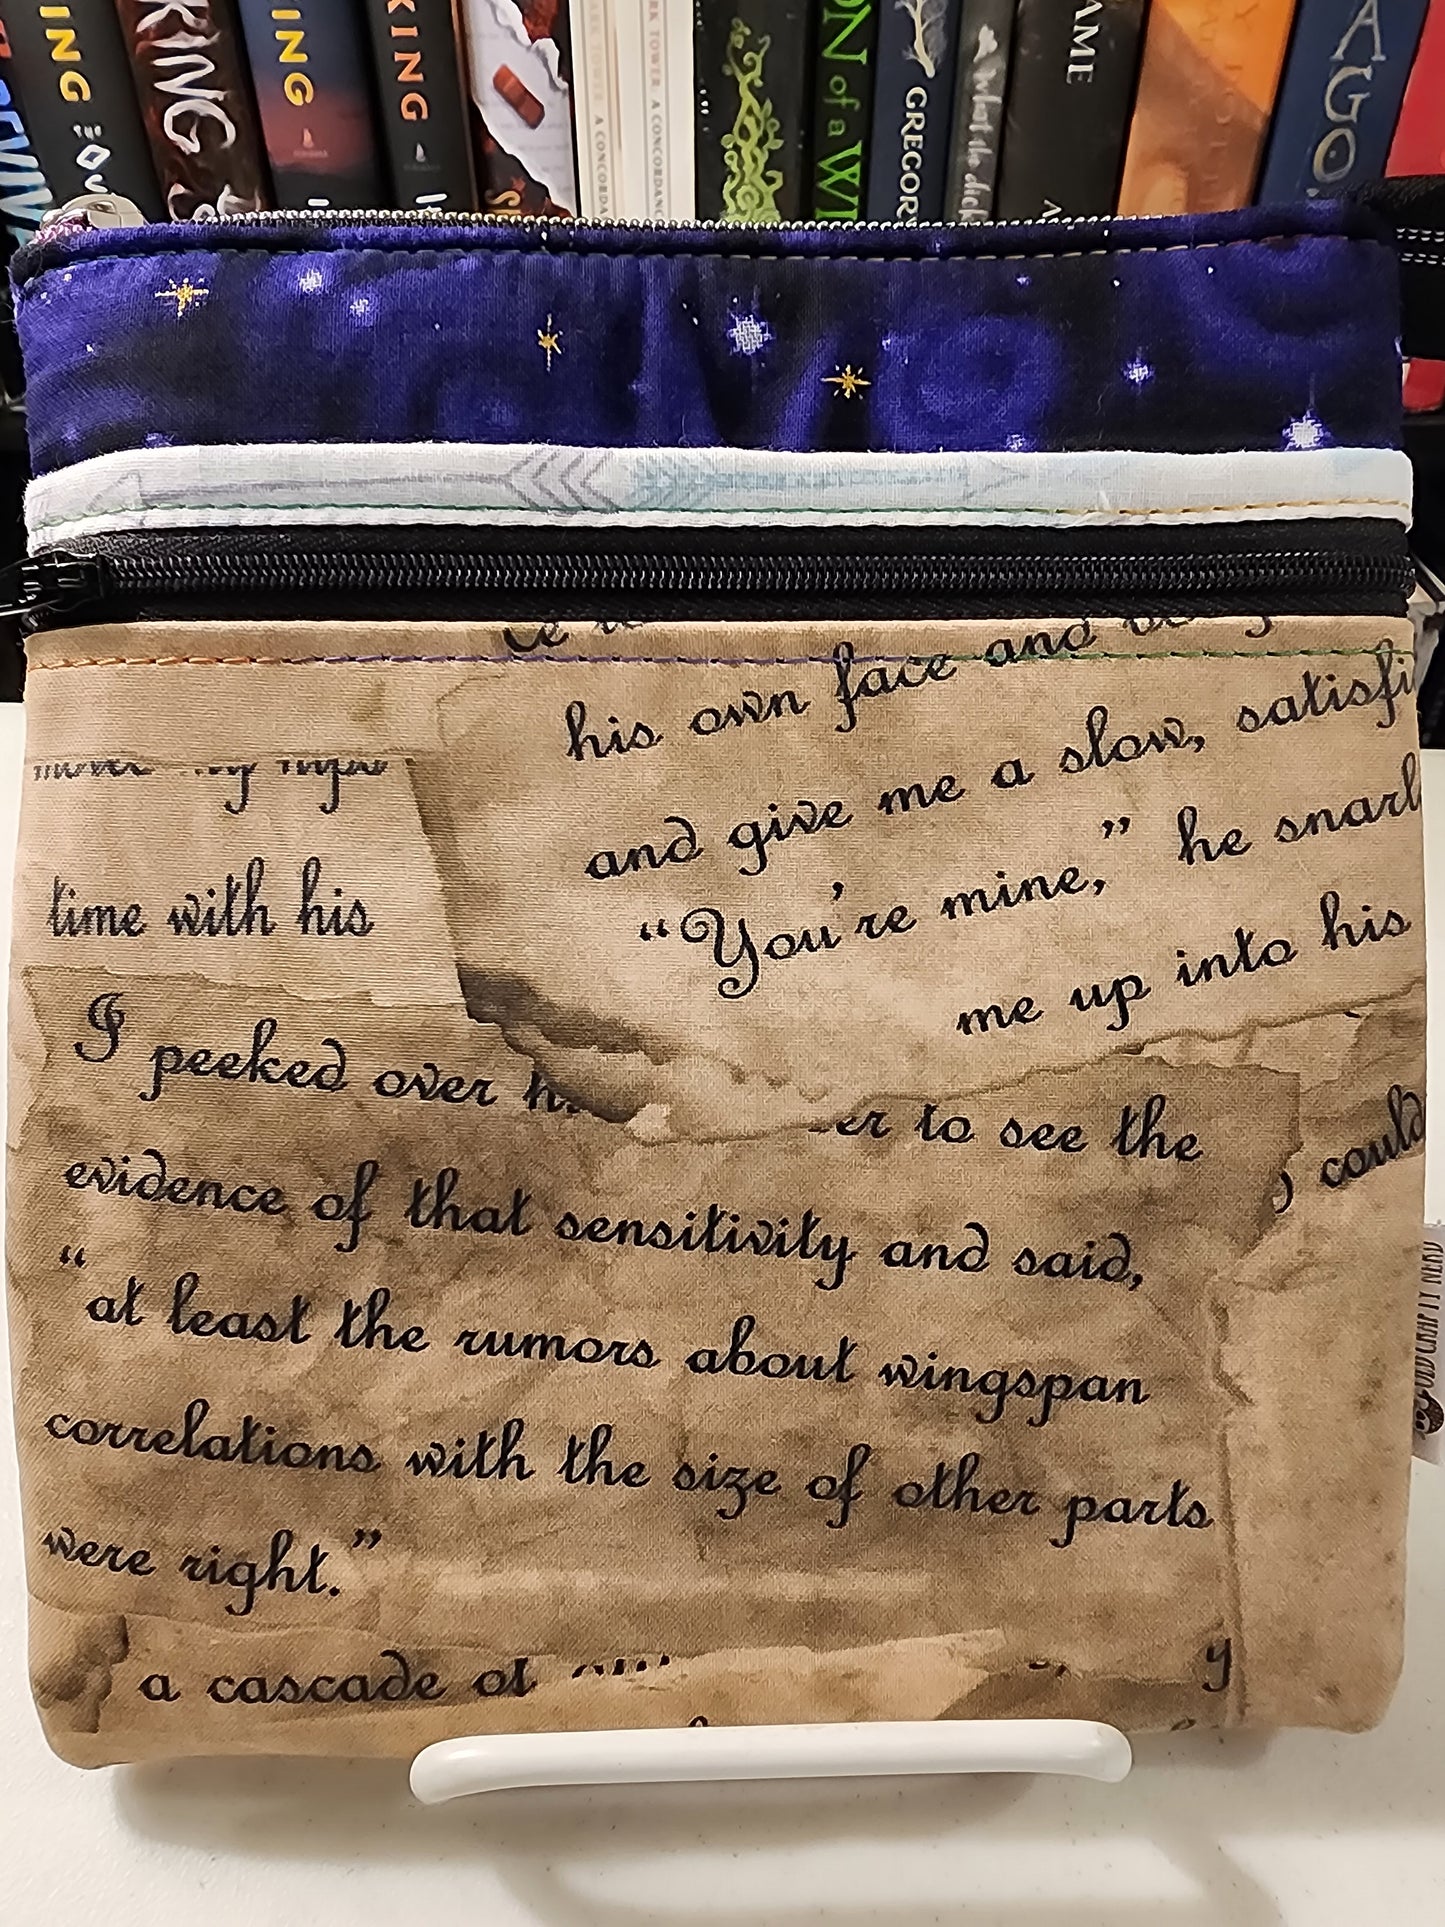 ING
KING
ING
KING
TOWER: A CONCORDANCE
ON of a WI
GREGORY
What the
AME
AGO
his own face and
and give me a slow, satisfi
"You're mine," he snarl
me up into his
time with his
I peeked over
to see the
evidence of that sensitivity and said,
could
"at least the rumors about wingspan
correlations with the size of other parts
were right."
a cascade of
y
NERD